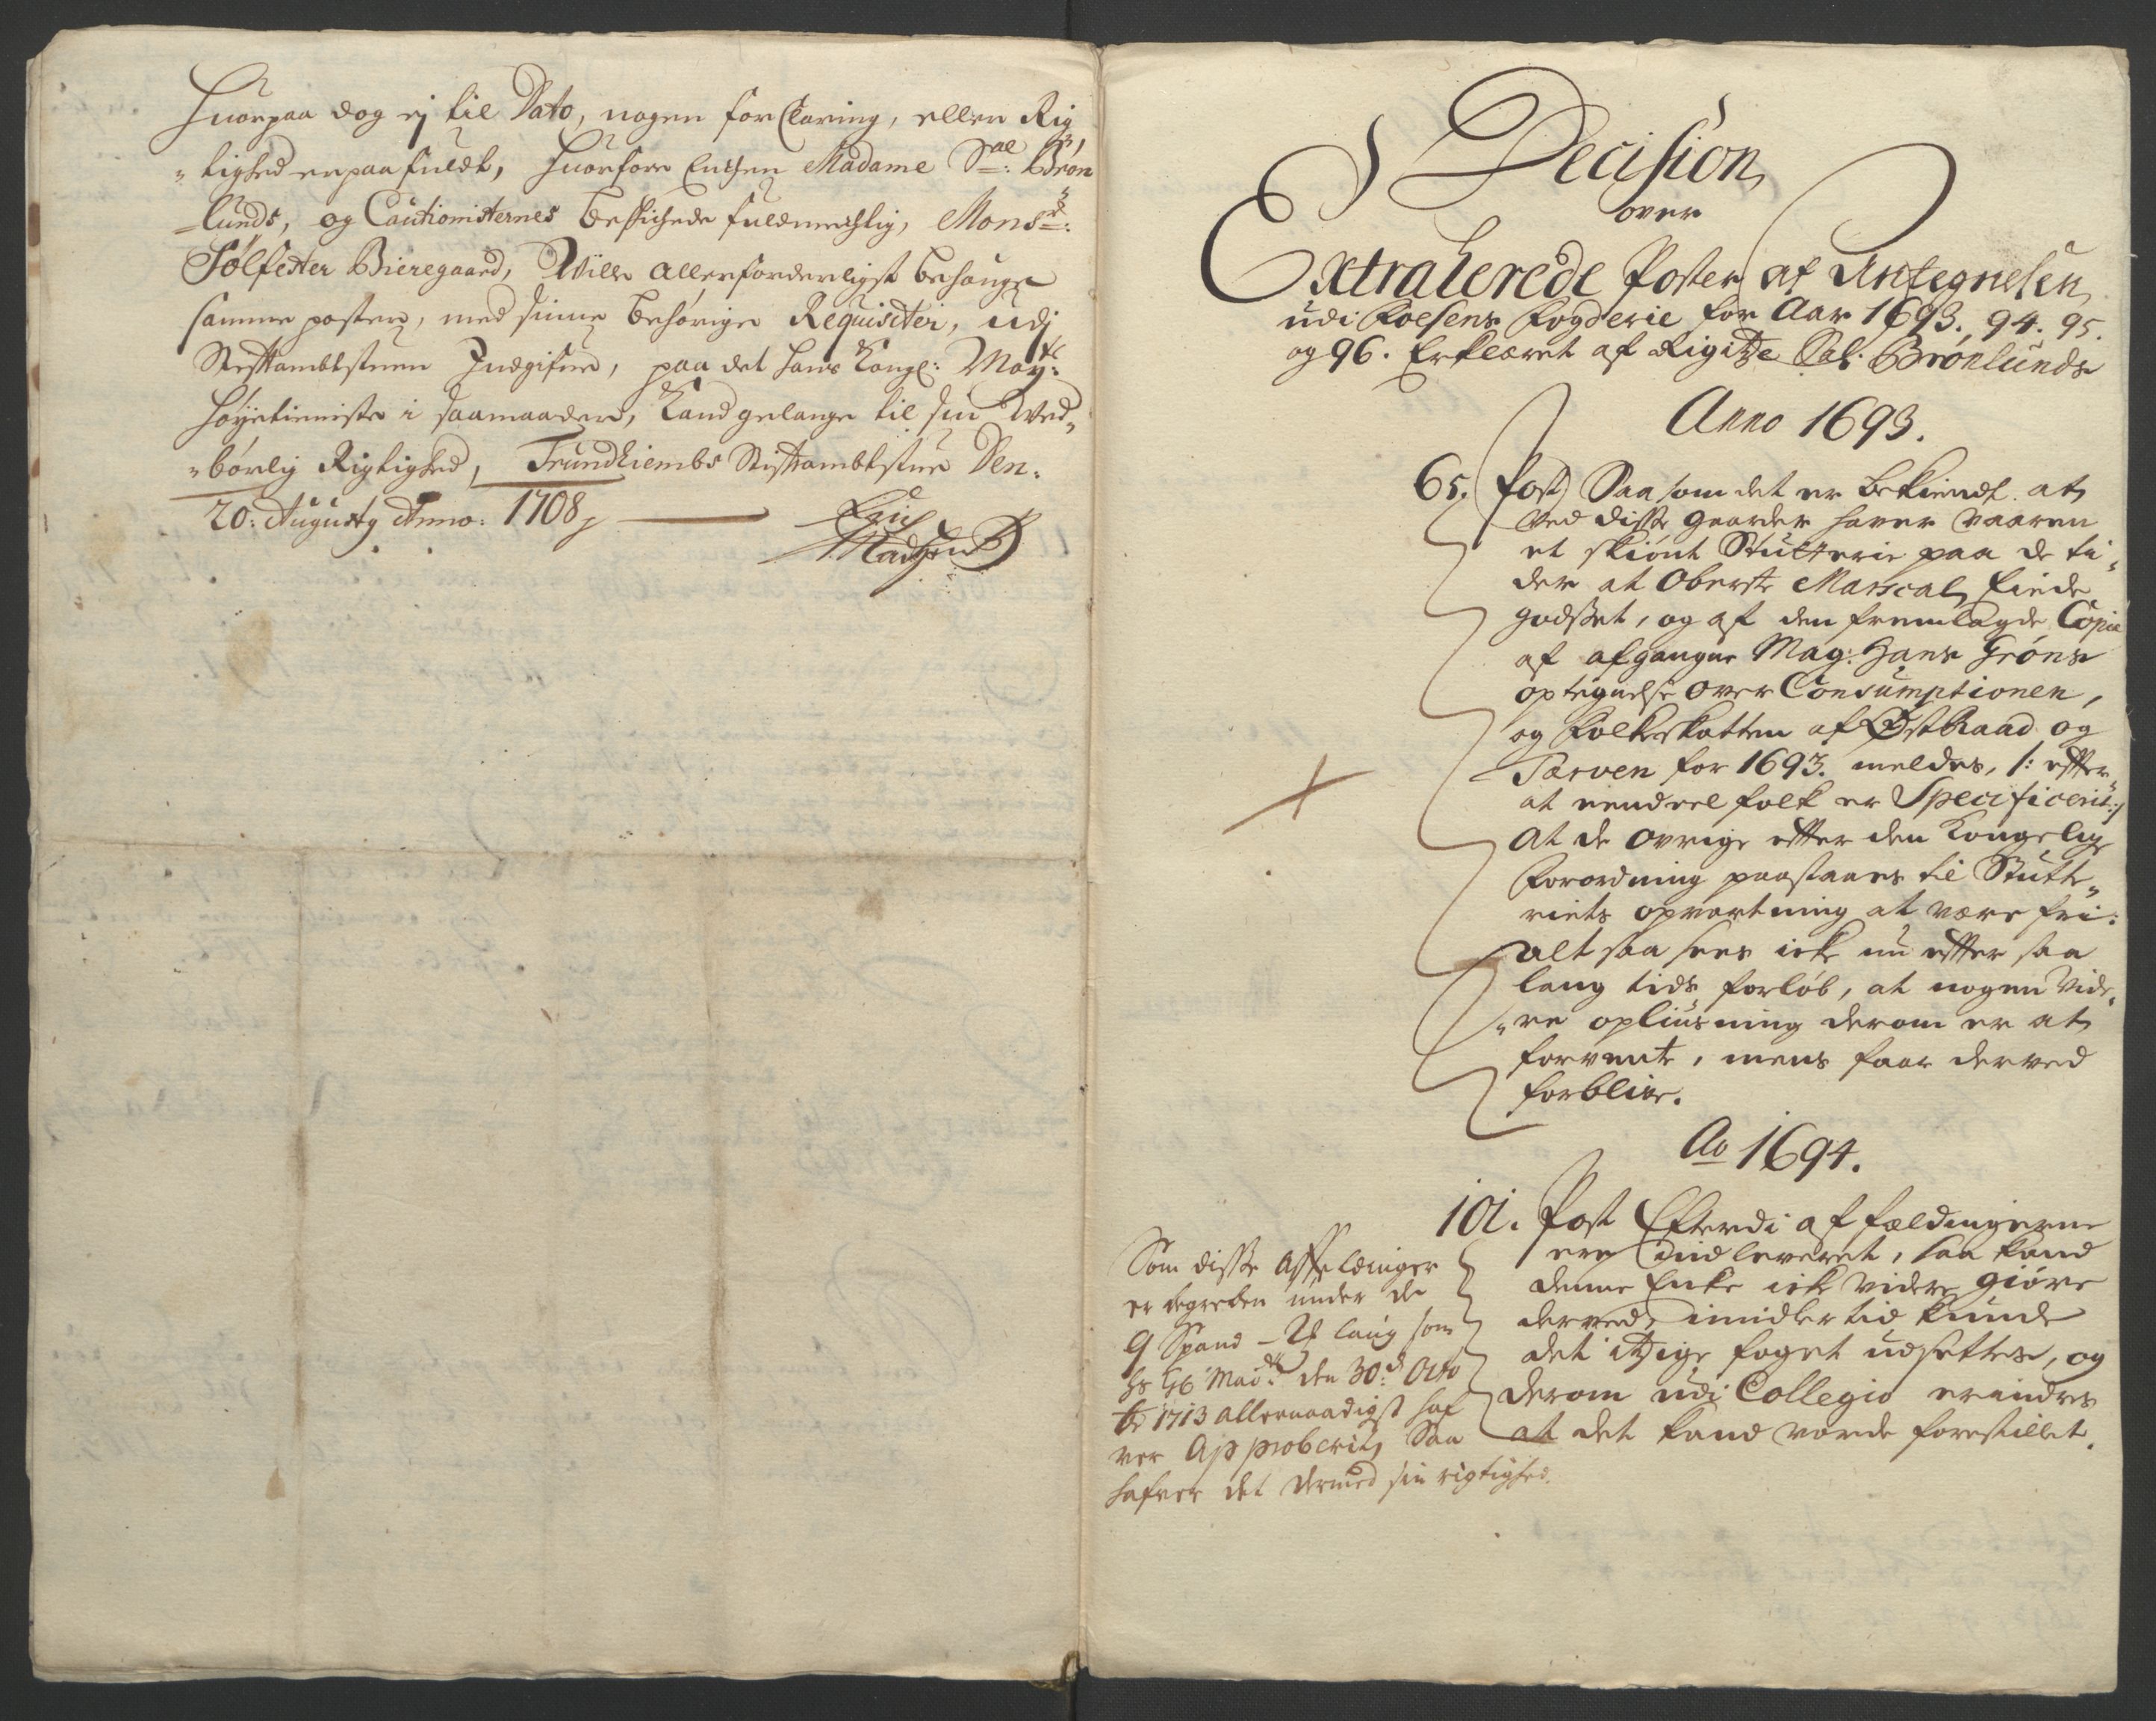 Huorpaa dog ej til Dato, nogen forClaring, eller Rig
"tighed erpaafuldt, Huorfore Enchen Madame Sal: Brøn
-lunds, og Cautionisternes beskichede fuldmechtig, Monsr:
Sølfester Bieregaard, Wille allerforderligst behange
samme poster, med sinne behørige Requisiter, udj
Stiftambtstuen Indgifue, paa det hans Kongl: Mayts:
høyetieniste i saamaader, Kand gelange til sin Wed„
"børlig Rigtighed, Trundhiembs Stiftambtstue Den:
20: Augusty Anno: 1708
Erich
Madsen
Decision
over
Extraherede Poster af Antegnelsen
udi Fosens Fogderie for Aar 1693. 94. 95.
og 96. Erklæret af Rigitze Sal. Brønlunds
Anno 1693.
65. Post) Saasom det er bekiendt at
ved disse gaarder haver vaaren
et skiønt Stutterie paa de ti„
der at Oberste Marscal Eiede
godset, og af den fremlagde Copie
af afgangne Mag: Hans Grøns
optegnelse over Consumptionen,
og Folkeskatten af Østraad og
Tarven for 1693. meldes, /: efter„
at eendeel folk er Specificerit :/
At de øvrige efter den Kongelige
Forordning paastaaes til Stutte„
riets opvartning at være fri:
altsaa sees icke nu efter saa
lang tids forløb, at nogen vide„
"re opliusning derom er at
forvente, mens faar derved
forblive.
Ao 1694.
101. Post Efterdi affældingerne
ere indleveret, saa kand
denne Enke icke videre giøre
derved, imidlertid kunde
det itzige foget udsettes, og
derom udi Collegio erindres
at det kand vorde forestillet.
Som disse Affeldinger
er begreben under de
9 Spand - laug som
hs Mads den 30d Octo
br 1713 allernaadigst haf
ver Approberit, Saa
hafver det dermed sin rigtighed.